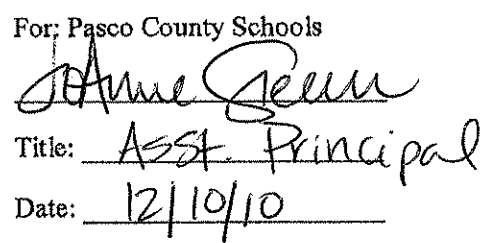 For: Pasco County Schools
JoAnne Green
Title: Asst. Principal
Date: 12/10/10